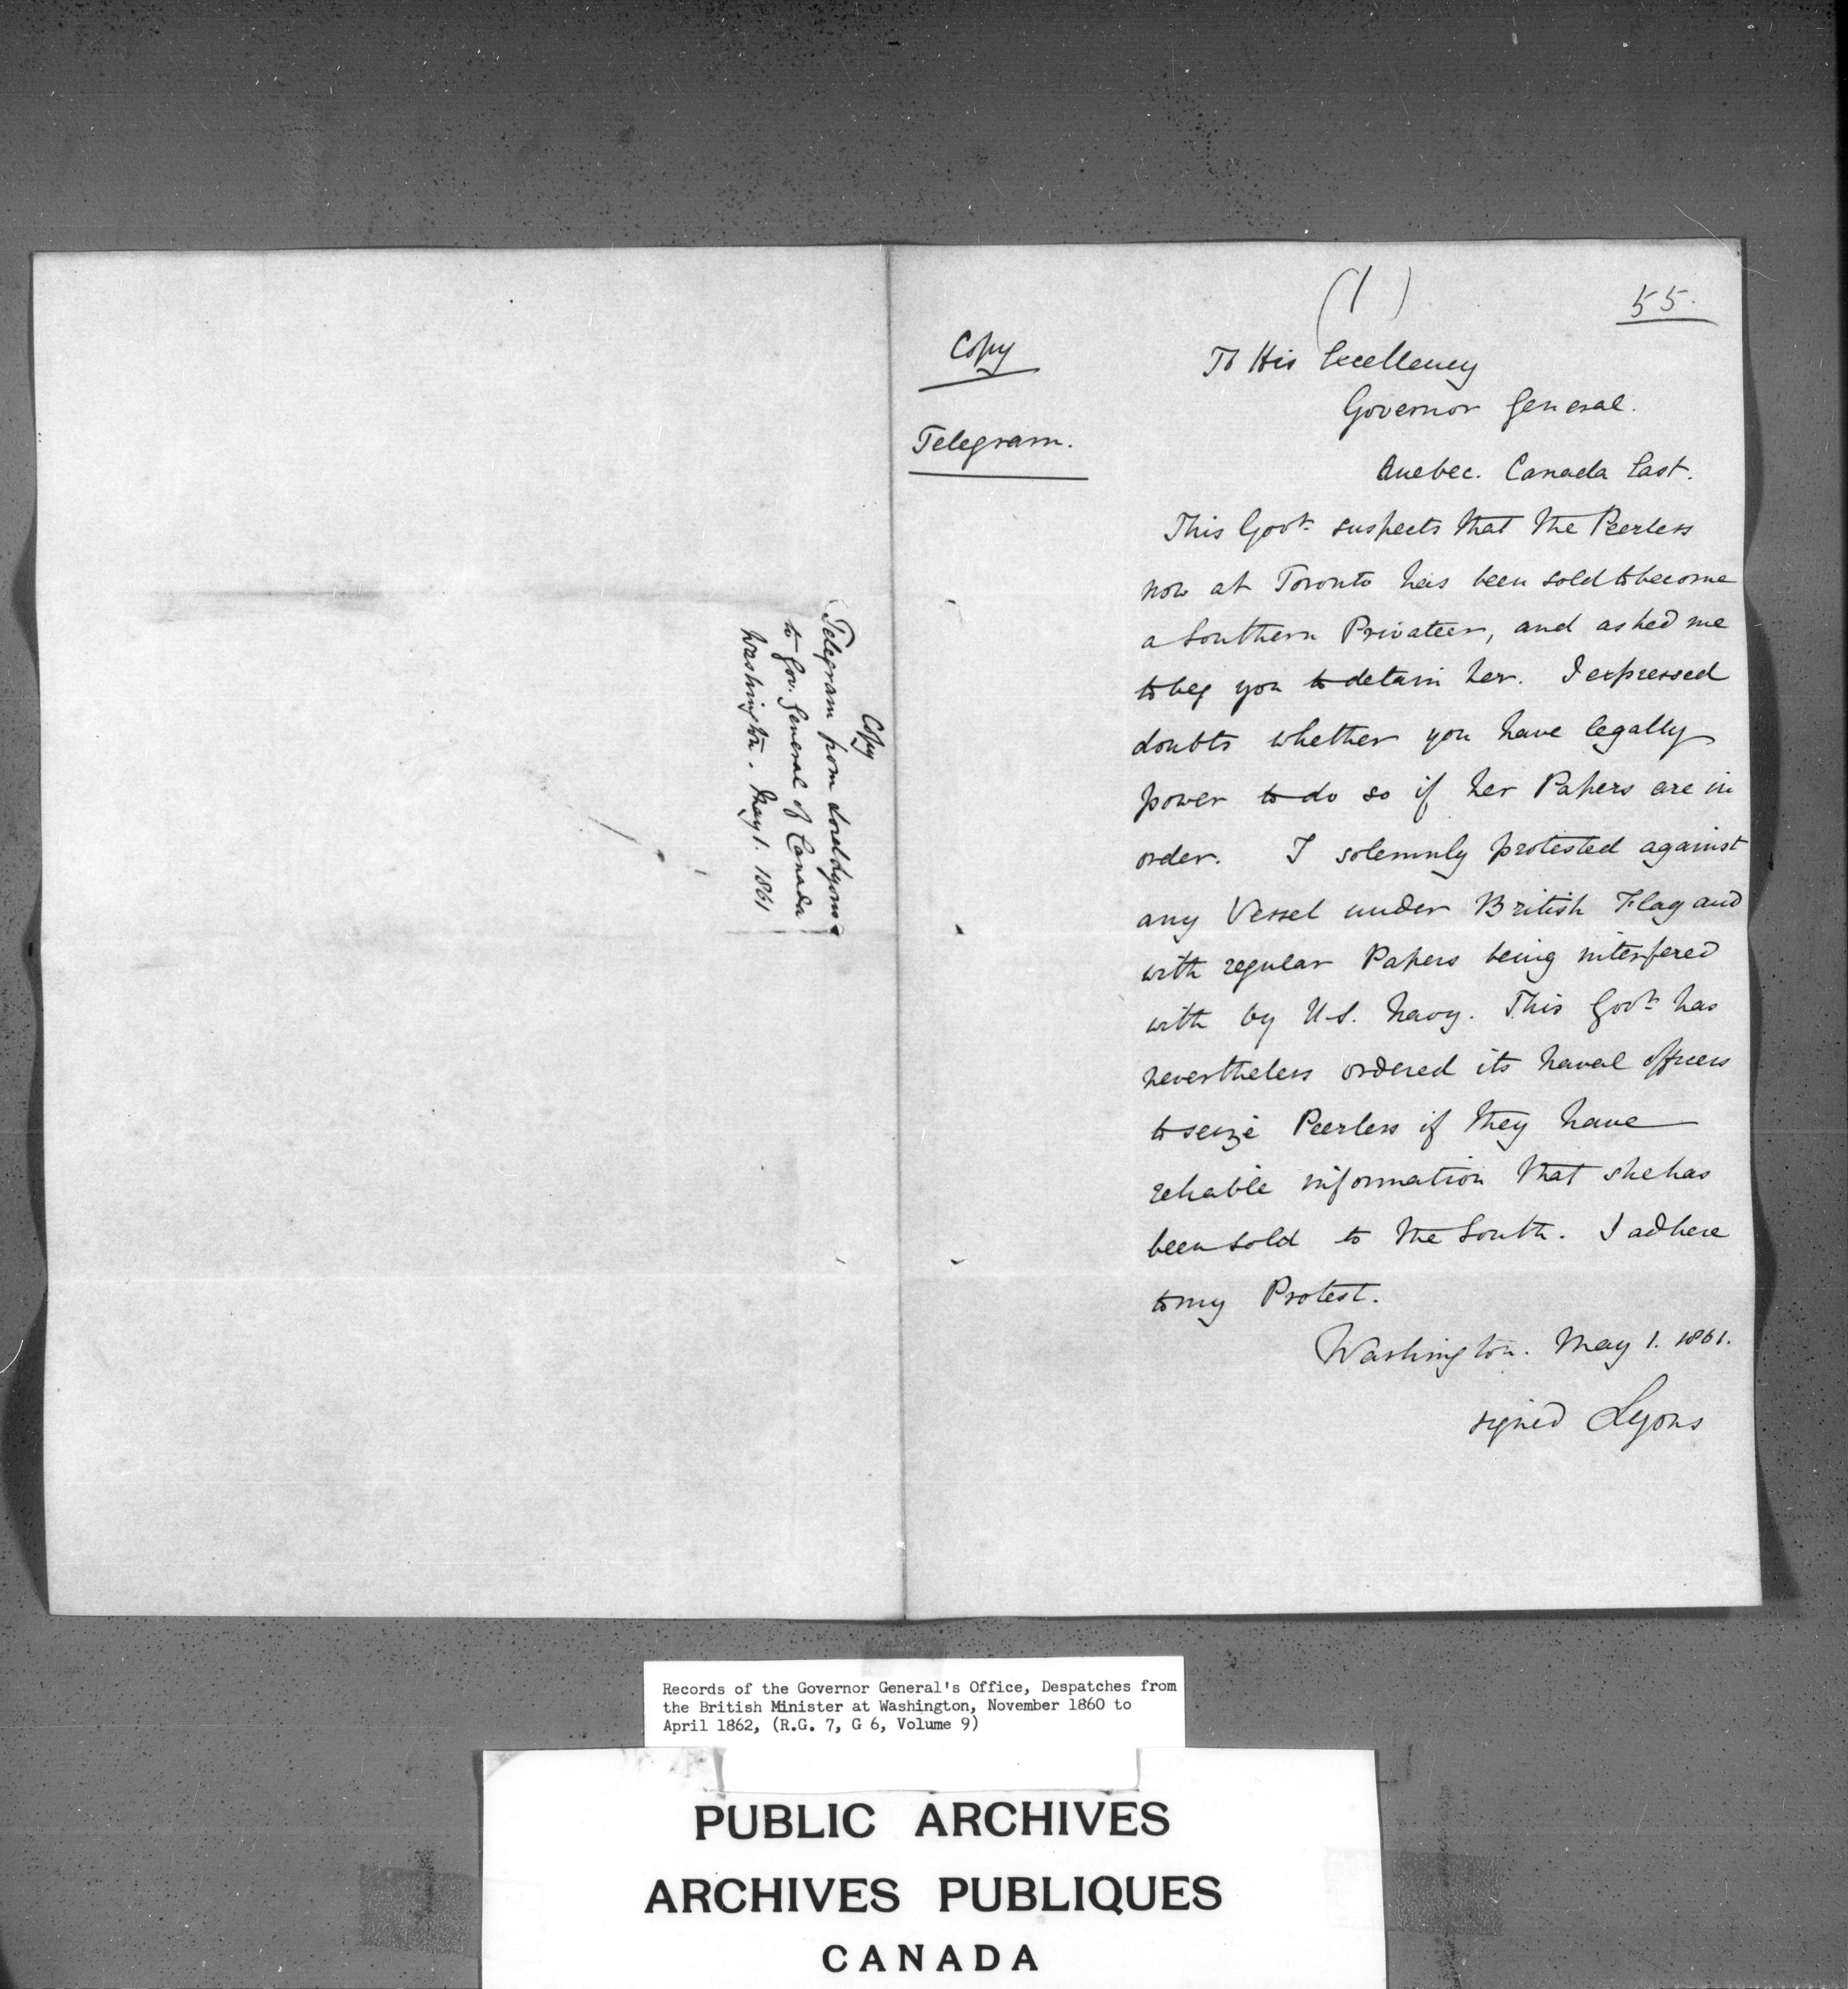 Copy
Telegram from Lord Lyons
to Gov. General of Canada
Washington. May 1. 1861
(1)
55.
Copy
Telegram.
To His Excellency
Governor General.
Quebec. Canada East.
This Govt. suspects that the Peerless
now at Toronto has been sold to become
a Southern Privateer, and asked me
to beg you to detain her. I expressed
doubts whether you have legally
power to do so if her Papers are in
order. I solemnly protested against
any Vessel under British Flag and
with regular Papers being interfered
with by U.S. Navy. This Govt. has
nevertheless ordered its naval officers
to seize Peerless if they have
reliable information that she has
been sold to the South. I adhere
to my Protest.
Washington. May 1. 1861.
signed Lyons
Records of the Governor General's Office, Despatches from
the British Minister at Washington, November 1860 to
April 1862, (R.G. 7, G 6, Volume 9)
PUBLIC ARCHIVES
ARCHIVES PUBLIQUES
CANADA